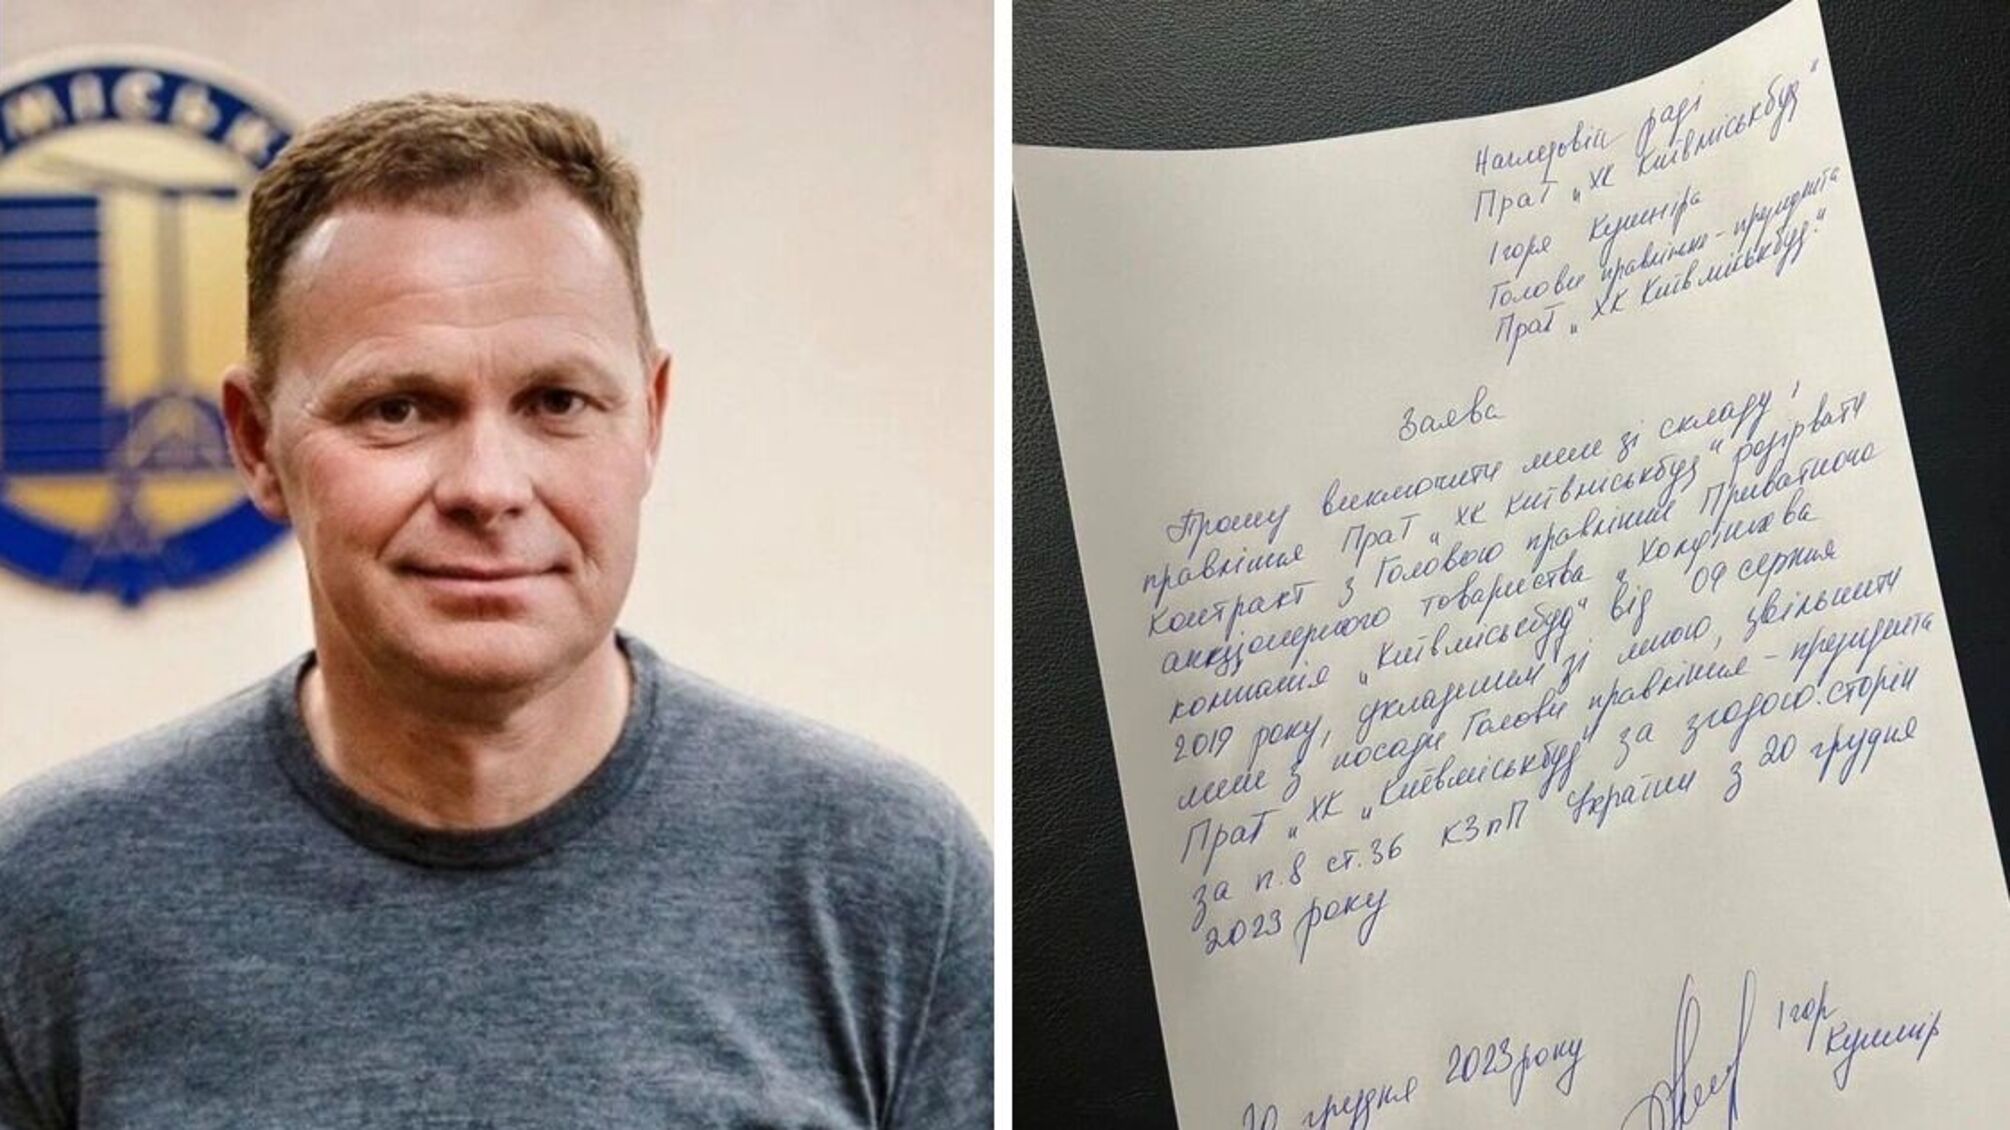 МІСЬК
Наглядовій раді
ПраТ „ХК Київміськбуд"
Ігоря Кушніра
Голови правління-президента
ПраТ „ХК Київміськбуд."
Заява
Прошу виключити мене зі складу
правління ПраТ „ХК Київміськбуд" розірвати
Контракт з Головою правління Приватного
акціонерного товариства „Холдингова
компанія „Київміськбуд" від 09 серпня
2019 року, укладеним зі мною, звільнити
мене з посади Голови правління-президента
ПраТ „ХК „Київміськбуд" за згодою сторін
за п.8 ст.36 КЗпП України з 20 грудня
2023 року
20 грудня 2023 року
Ігор
Кушнір